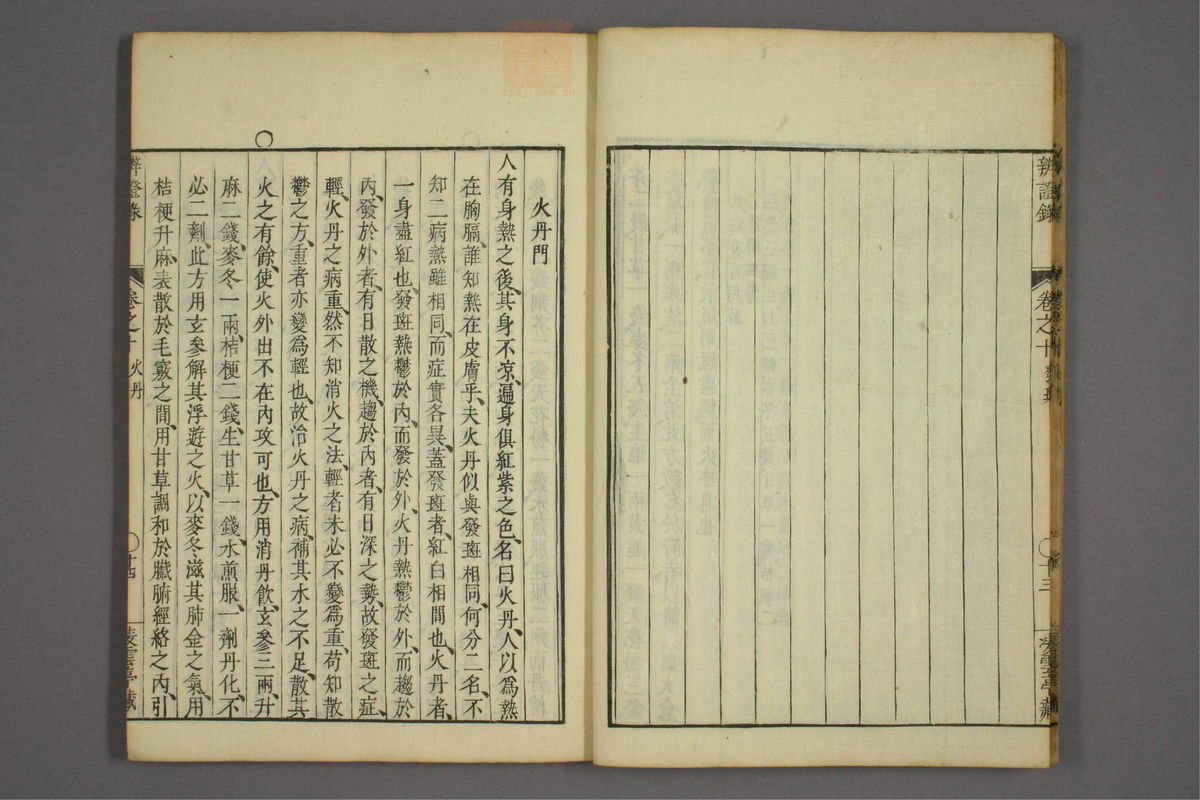 辨證錄
卷之十
十三
火丹門
人有身熱之後、其身不凉、遍身俱紅紫之色、名曰火丹、人以爲熱
在胸膈、誰知熱在皮膚乎、夫火丹似與發斑相同、何分二名、不
知二病熱雖相同、而症實各異、蓋發斑者、紅白相間也、火丹者、
一身盡紅也、發斑熱鬱於內、而發於外、火丹熱鬱於外、而趨於
內、發於外者、有日散之機、趨於內者、有日深之勢、故發斑之症、
輕、火丹之病重、然不知消火之法、輕者未必不變爲重、苟知散
鬱之方、重者亦變爲輕也、故治火丹之病、補其水之不足、散其
火之有餘、使火外出不在內攻可也、方用消丹飲、玄參三兩、升
麻二錢、麥冬一兩、桔梗二錢、生甘草一錢、水煎服、一劑丹化、不
必二劑、此方用玄參解其浮遊之火、以麥冬滋其肺金之氣、用
桔梗升麻、表散於毛竅之間、用甘草調和於臟腑經絡之內、引
辨證錄
卷之十 火丹
十四
zysj.com.cn